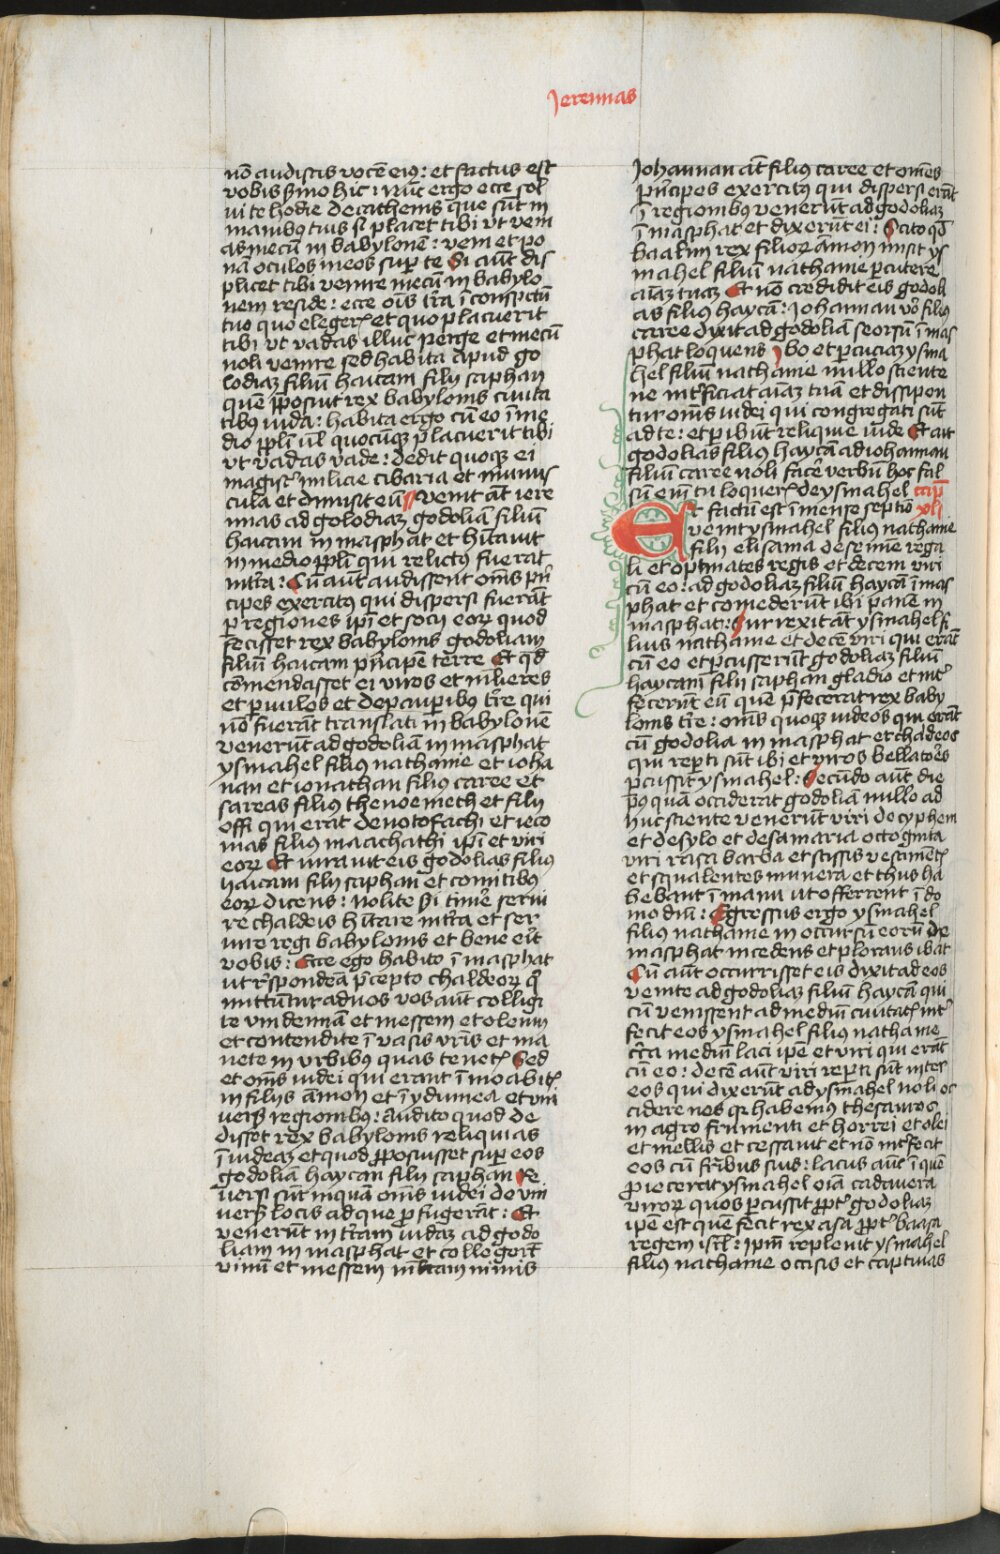 Jeremias
nō audistis vocē eiꝰ : et factus est
vobis s̄mo hic : nūc ergo ecce sol
ui te hodie de cathenis que sūt in
manibꝰ tuis si placet tibi vt veni
as mecū in babylonē : veni et po
nā oculos meos suꝑ te Si aūt dis
plicet tibi venire mecū in babylo
nem reside : ecce oīs tr̄a ī conspectu
tuo quo elegerꝭ et quo placuerit
tibi vt vadas illuc perge et mecū
noli venire sed habita apud go
lodiaʒ filiū haicam filij saphan
quē p̄posuit rex babylonis ciuita
tibꝰ iuda : habita ergo cū eo ī me
dio ppl̄i vl̄ quocūqʒ placuerit tibi
vt vadas vade : dedit quoqʒ ei
magistꝰ milicie cibaria et munus
cula et dimisit eū venit āt iere
mias ad golodiaʒ godoliā filiū
haicam in masphat et hītauit
in medio ppl̄i qui relictus fuerat
in tr̄a : Cū aūt audissent om̄s pn̄
cipes exercitꝰ qui dispersi fuerāt
ꝑ regiones ip̄i et socij eoꝝ quod
fecisset rex babylonis godoliam
filiū haicam pn̄cipē terre Et qd̄
cōmendasset ei viros et mlieres
et pauulos et de pauperibꝰ tr̄e qui
nō fuerāt translati in babylonē
venerūt ad godoliā in masphat
ysmahel filiꝰ nathanie et ioha
nan et ionathan filiꝰ caree et
sareas filiꝰ thenoemeth et filij
offi qui erāt de notofachi et ieco
nias filiꝰ maachathi ip̄i et viri
eoꝝ Et iurauit eis godolias filiꝰ
haicam filij saphan et comitibꝰ
eoꝝ dicens : nolite timē serui
re chaldeis hītare in tr̄a et ser
uire regi babylonis et bene eīt
vobis : Ecce ego habito ī masphat
ut r̄spondeā p̄cepto chaldeoꝝ qͥ
mittūtur ad vos vos aūt colligi
te vindemiā et messem et oleum
et contendite ī vasis vr̄is et ma
nete in vrbibꝰ quas tenetꝭ Sed
et om̄s iudei qui erant ī moabitꝭ
in filijs āmon et ī ydumea et vni
uersꝭ regionibꝰ : audito quod de
disset rex babylonis reliquias
ī iudeaʒ et quod p̄posuisset suꝑ eos
godoliā haycan filij saphan re
uersi sūt inquā om̄s iudei de vni
uersꝭ locis ad que ꝓfugerāt : Et
venerunt in tr̄am iudaʒ ad godo
liam in masphat et collegerūt
vinū et messem mltam nimis
Johannan āt filiꝰ caree et om̄es
pn̄cipes exercitꝰ qui dispersi erāt
ī regionibꝰ venerūt ad godoliaʒ
ī masphat et dixerūt ei : Scito qd̄
baalim rex filioꝝ āmon misit ys
mahel filiū nathanie ꝑcutere
aīaʒ tuaʒ Et nō credidit eis godoli
as filiꝰ haycā : Johannan vͦ filiꝰ
caree dixit ad godoliā seorsū ī mas
phat loquens Jbo et ꝑcuciaʒ ysma
hel filiū nathanie nullo sciente
ne intͥficiat aīaʒ tuā et dissipen
tur om̄s iudei qui congregati sūt
ad te : et ꝑibūt reliquie iude Et ait
godolias filiꝰ haycā ad iohannan
filiū caree noli facē verbū hoc fal
sū em̄ tu loquerꝭ de ysmahel cap̄
Et factū est ī mense septīo xli
venit ysmahel filiꝰ nathanie
filij elisama de semīe rega
li et optimates regis et decem viri
cū eo : ad godoliaʒ filiū haycā ī mas
phat et comederūt ibi panē in
masphat : Surrexit āt ysmahel fi
lius nathanie et decē viri qui erāt
cū eo et ꝑcusserūt godoliaʒ filiū
haycam filij saphan gladio et intͥ
fecerūt eū quē p̄fecerat rex baby
lonis tr̄e : om̄s quoqʒ iudeos qui erāt
cū godolia in masphat et chaldeos
qui reꝑti sūt ibi et viros bellatōes
ꝑcussit ysmahel : Secūdo aūt die
pꝰquā occiderat godoliā nullo ad
huc sciente venerūt viri de cyphem
et de sylo et de samaria octoginta
viri rasa barba et scissis vestimētꝭ
et squalentes munera et thus ha
bebant ī manu ut offerrent ī do
mo dn̄i : Egressus ergo ysmahel
filiꝰ nathanie in occursū eorū de
masphat incedens et plorans ibat
Cū aūt occurrisset eis dixit ad eos
venite ad godoliaʒ filiū haycā qui
cū venissent ad mediū ciuitatꝭ intͥ
fecit eos ysmahel filiꝰ nathanie
cͥca mediū laci ip̄e et viri qui erāt
cū eo : decē aūt viri reꝑti sūt inter
eos qui dixerūt ad ysmahel noli oc
cidere nos qꝛ habemꝰ thesauros
in agro frumenti et hordei et olei
et mellis et cessauit et nō intͥfecit
eos cū fr̄ibus suis : lacus aūt ī quē
ꝓiecerat ysmahel oīa cadauera
viroꝝ quos ꝑcussit ꝓptͥ godoliaʒ
ip̄e est quē fecit rex asa ꝓptͥ baasa
regem isrl̄ : ip̄m repleuit ysmahel
filiꝰ nathanie occisis et captiuas